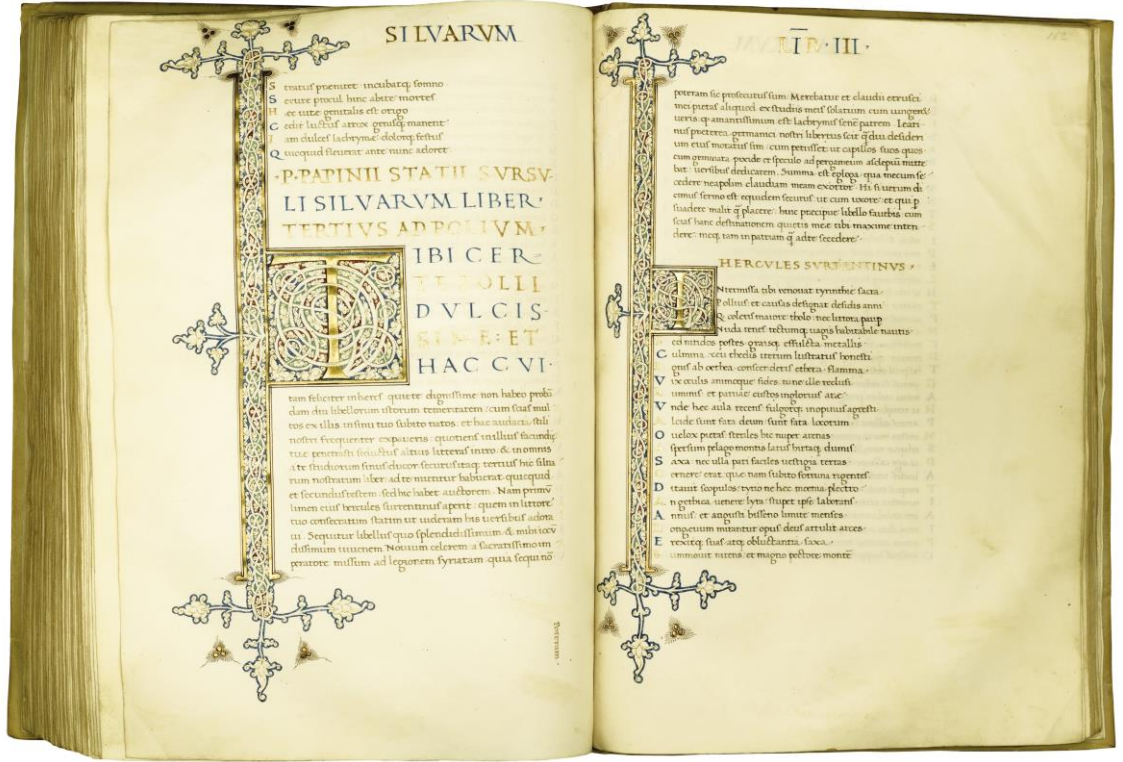 SILVARVM
S tratus premret incubatq; somno
S ecure procul hinc abite mortes
H ec uite genitalis est origo
C edit luctus atrox genisq; manent
I am dulces lachryme dolorq; festus
Q uicquid fleuerat ante nunc adoret
·P·PAPINII STATII SVRSV-
LI SILVARVM LIBER·
TERTIVS AD POLIVM·
TIBI CER
TE POLLI
DVLCIS-
SIME: ET
HAC CVI·
tam feliciter inheres quiete dignissime non habeo probā
dam diu libellorum istorum temeritatem: cum scias mul
tos ex illis insinu tuo subito natos: et hac audacia stili
nostri frequenter expaueris: quotiens inillius facundię
tue penetrasti seductus altius litteras intro: & in omnis
a te studiorum sinus ducor securus itaq; tertius hic silua
rum nostrarum liber ad te mittitur habuerat quicquid
et secundus testem: sed hic habet auctorem· Nam primū
limen eius hercules surrentinus aperit: quem in littore
tuo consecratum statim ut uideram his uersibus adora
ui· Sequitur libellus quo splendidissimum & mihi iocū
dissimum iuuenem Novium celerem a sacratissimo im
peratore missum ad legionem syriatam quia sequi nō
poteram
LIB·III·
162
poteram sic prosecutus sum· Merebatur et claudii etrusci
mei pietas aliquod ex studiis meis solatium cum lungeret
ueris· q̄ amantissimum est lachrymis senē patrem· Leari
nus preterea germanici nostri libertus scit q̄ diu desideri
um eius moratus sim: cum petisset ut capillos suos quos
cum gemmata pixide et speculo ad pergameum asclepiū mitte
bat uersibus dedicarem· Summa est egloga qua mecum se
cedere neapolim claudiam meam exortor· Hi si uerum di
cimus sermo est equidem securus ut cum uxore: et qui p
suadere malit q̄ placere· hunc precipue libello fauebis cum
scias hanc destinationem quietis mee tibi maxime inten
dere· meq; tam in patriam q̄ adte secedere·
HERCVLES SVRRENTINVS·
INtermissa tibi renouat tyrinthie sacra·
Pollius: et causas designat desidis anni
Q coleris maiore tholo· nec littora paup
Nuda tenes tectumq; uagis habitabile nautis·
S ed nitidos postes graisq; effulcta metallis
C ulmina: ceu thedis iterum lustratus honesti
I gnis ab oethea conscenderis ethera flamma·
V ix oculis animoque fides tu ne ille reclusi
L uminis et paruae custos inglorius arae
V nde hec aula recens fulgorq; inopinus agresti·
A lcide sunt fata deum sunt fata locorum·
O uelox pietas steriles hic nuper arenas
A spersum pelago montis latus hirtaq; dumis
S axa nec ulla pati faciles uestigia terras
C ernere erat que nam subito fortuna rigentes
D itauit scopulos: tyrio ne hec moenia plectro
A n gethica uenere lyra: stupet ipse laborans
A nnus: et angusti bisseno limite menses
L ongeuum mirantur opus deus attulit arces
E rexitq; suas atq; obluctantia saxa·
S ummouit nitens et magno pectore montē